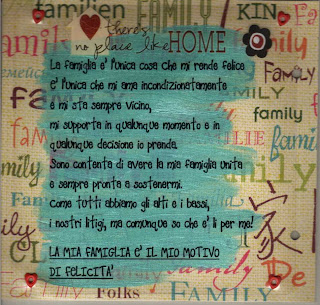 familien FAMILY KIN
there's
no place like HOME
Family
La famiglia e' l'unica cosa che mi rende felice
e' l'unica che mi ama incondizionatamente
e mi sta sempre vicino,
mi supporta in qualunque momento e in
qualunque decisione io prenda.
Sono contenta di avere la mia famiglia unita
e sempre pronta a sostenermi.
Come totti abbiamo gli alti e i bassi,
i nostri litigi, ma comunque so che e' li per me!
LA MIA FAMIGLIA E' IL MIO MOTIVO
DI FELICITA'
FAMILY
family
Family
家
Folks